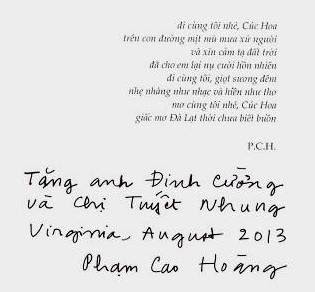 đi cùng tôi nhé, Cúc Hoa
trên con đường mịt mù mưa xứ người
và xin cảm tạ đất trời
đã cho em lại nụ cười hồn nhiên
đi cùng tôi, giọt sương đêm
nhẹ nhàng như nhạc và hiền như thơ
mơ cùng tôi nhé, Cúc Hoa
giấc mơ Đà Lạt thời chưa biết buồn
P.C.H.
Tặng anh Đinh Cường
và Chị Tuyết Nhung
Virginia, August 2013
Phạm Cao Hoàng